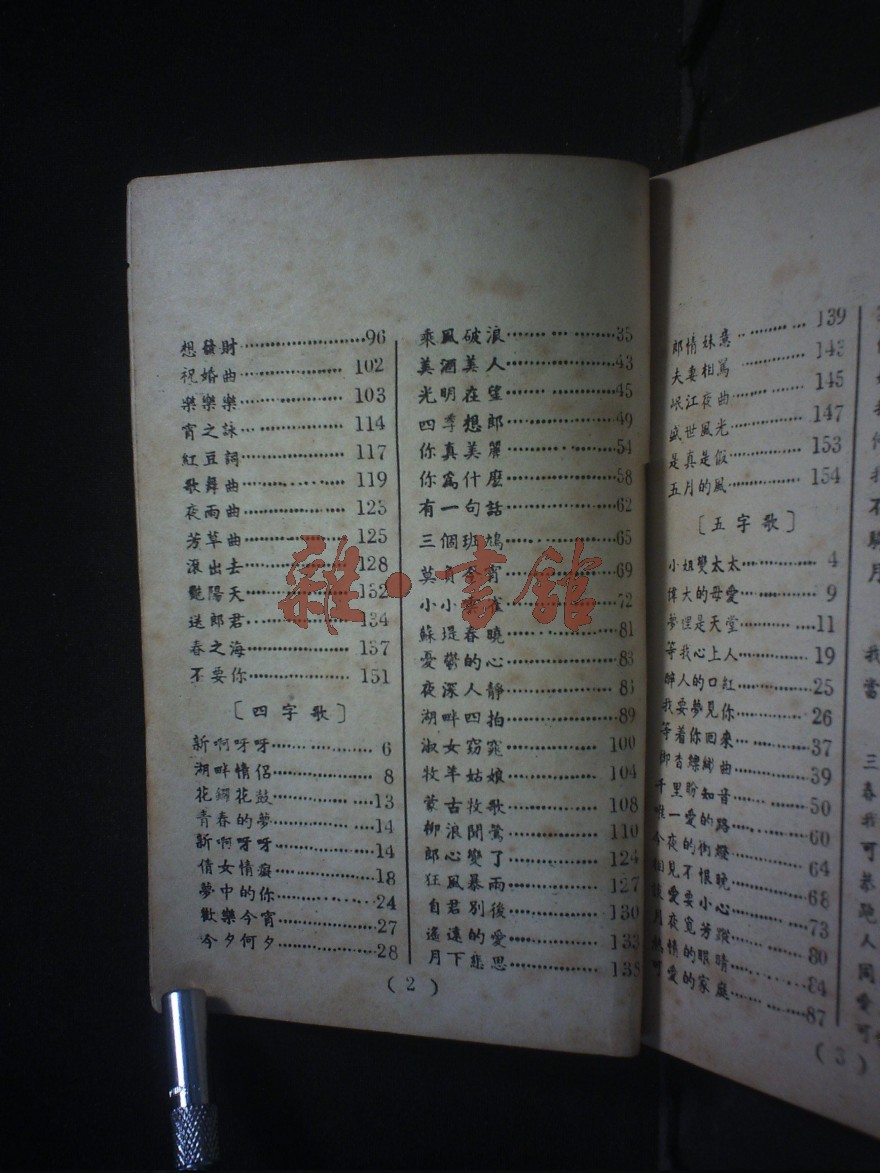 想發財 96
祝婚曲 102
樂樂樂 103
宵之詠 114
紅豆詞 117
歌舞曲 119
夜雨曲 123
芳草曲 125
滾出去 128
艷陽天 132
送郎君 134
春之海 137
不要你 151
〔四字歌〕
新啊呀呀 6
湖畔情侶 8
花鑼花鼓 13
青春的夢 14
新啊呀呀 14
倩女情癡 18
夢中的你 24
歡樂今宵 27
今夕何夕 28
乘風破浪 35
美酒美人 43
光明在望 45
四季想郎 49
你真美麗 54
你爲什麼 58
有一句話 62
三個班鳩 65
莫負今宵 69
小小雲雀 72
蘇堤春曉 81
憂鬱的心 83
夜深人靜 85
湖畔四拍 89
淑女窈窕 100
牧羊姑娘 104
蒙古牧歌 108
柳浪聞鶯 110
郎心變了 124
狂風暴雨 127
自君別後 130
遙遠的愛 133
月下悲思 138
(2)
郎情妹意 139
夫妻相罵 143
岷江夜曲 145
盛世風光 147
是真是假 153
五月的風 154
〔五字歌〕
小姐變太太 4
偉大的母愛 9
夢裡是天堂 11
等我心上人 19
醉人的口紅 25
我要夢見你 26
等着你回來 37
柳杏繰絲曲 39
千里盼知音 50
唯一愛的路 60
今夜的街燈 64
相見不恨晚 68
愛要小心 73
月夜覓芳蹤 80
情的眼睛 84
可愛的家庭 87
(3)
雜·書館